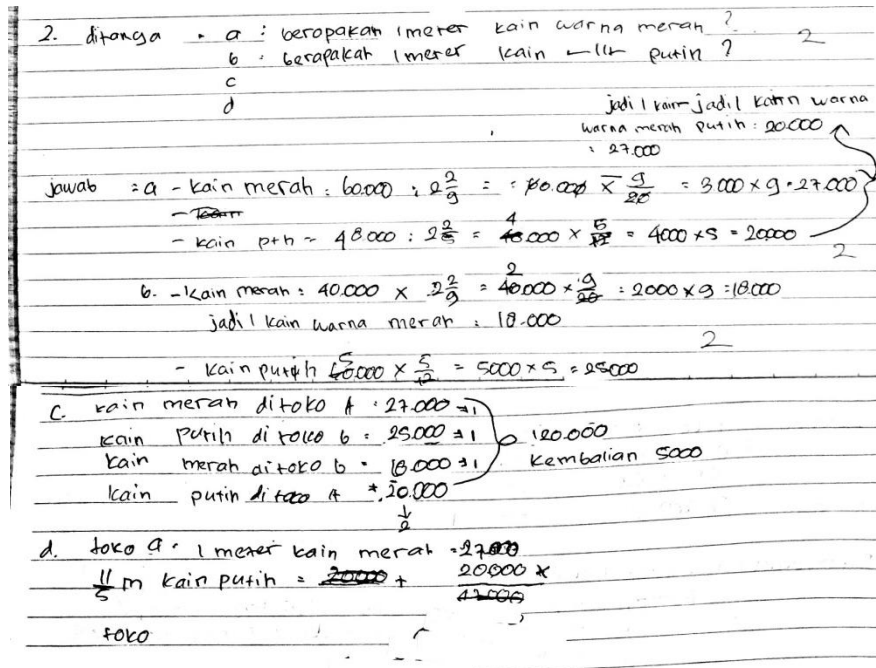 2. ditanya • a : beropakah 1 meter kain warna merah ? 2
b : berapakah 1 meter kain –||– putih ?
c
d
jadi 1 kain jadi 1 kain warna
warna merah putih : 20.000
: 27.000
jawab : a - kain merah : 60.000 : 2 2/9 = 60.000 × 9/20 = 3.000 × 9 = 27.000
- kain pth = 48.000 : 2 2/5 = 48.000 × 5/12 = 4000 × 5 = 20000
4
2
b. - kain merah : 40.000 × 2 2/9 = 40.000 × 9/20 = 2000 × 9 = 18.000
2
jadi 1 kain warna merah : 18.000
2
- kain putih 60.000 × 5/12 = 5000 × 5 = 25000
5
C. kain merah ditoko A : 27.000 → 1
kain putih di toko b : 25.000 → 1 120.000
kain merah di toko b : 18.000 → 1 kembalian 5000
kain putih di toko A : 20.000
↓
2
d. toko a : 1 meter kain merah = 27000
11/5 m kain putih = 20000 + 20000 ×
47000
toko